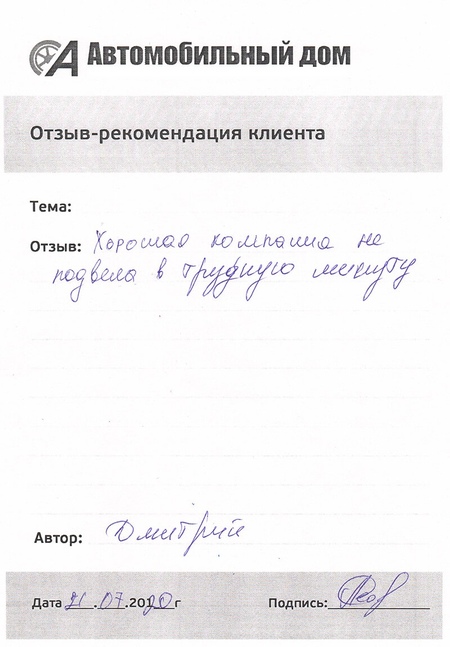 Автомобильный дом
Отзыв-рекомендация клиента
Тема:
Отзыв: Хорошая компания не
подвела в трудную минуту
Автор: Дмитрий
Дата 21.07.2020г Подпись: